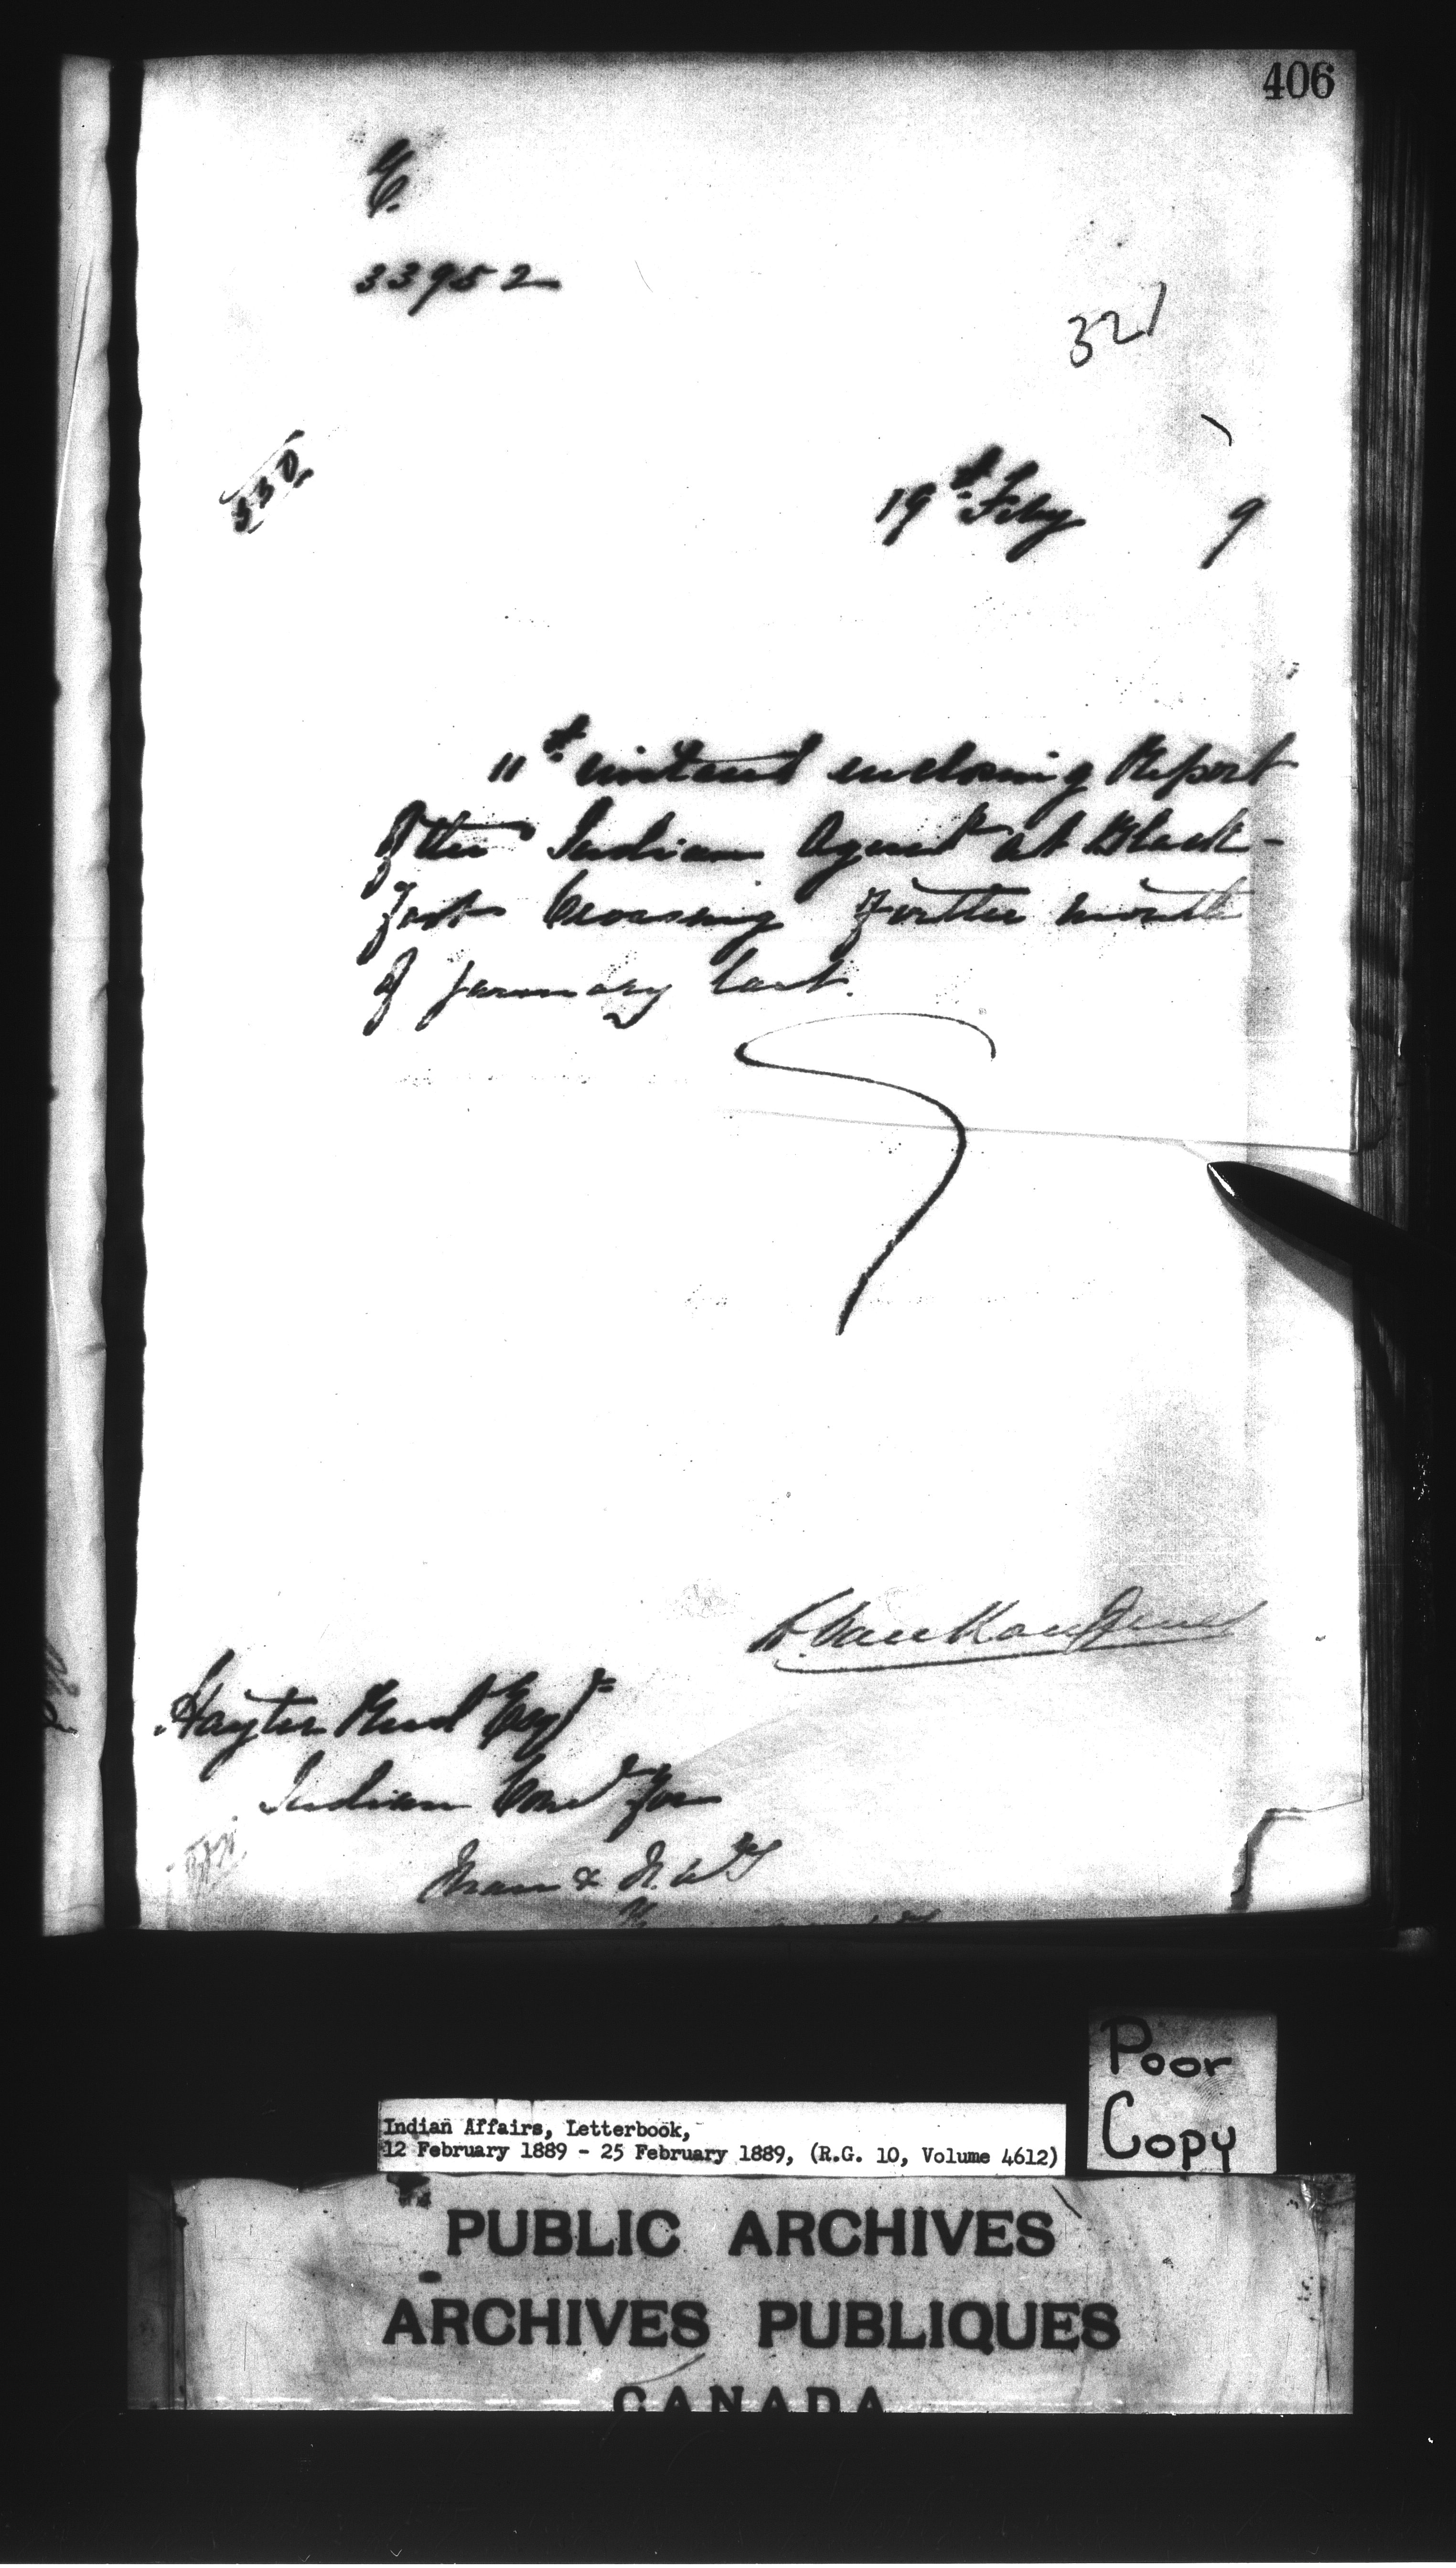 406
E.
33952
321
330
19th Feby 9
11th instant enclosing Report
of the Indian Agent at Black-
foot Crossing for the month
of January last.
L. VanKoughnet
Hayter Reed Esqre
Indian Comr for
Man & N.W.T
Poor
Copy
Indian Affairs, Letterbook,
12 February 1889 - 25 February 1889, (R.G. 10, Volume 4612)
PUBLIC ARCHIVES
ARCHIVES PUBLIQUES
CANADA